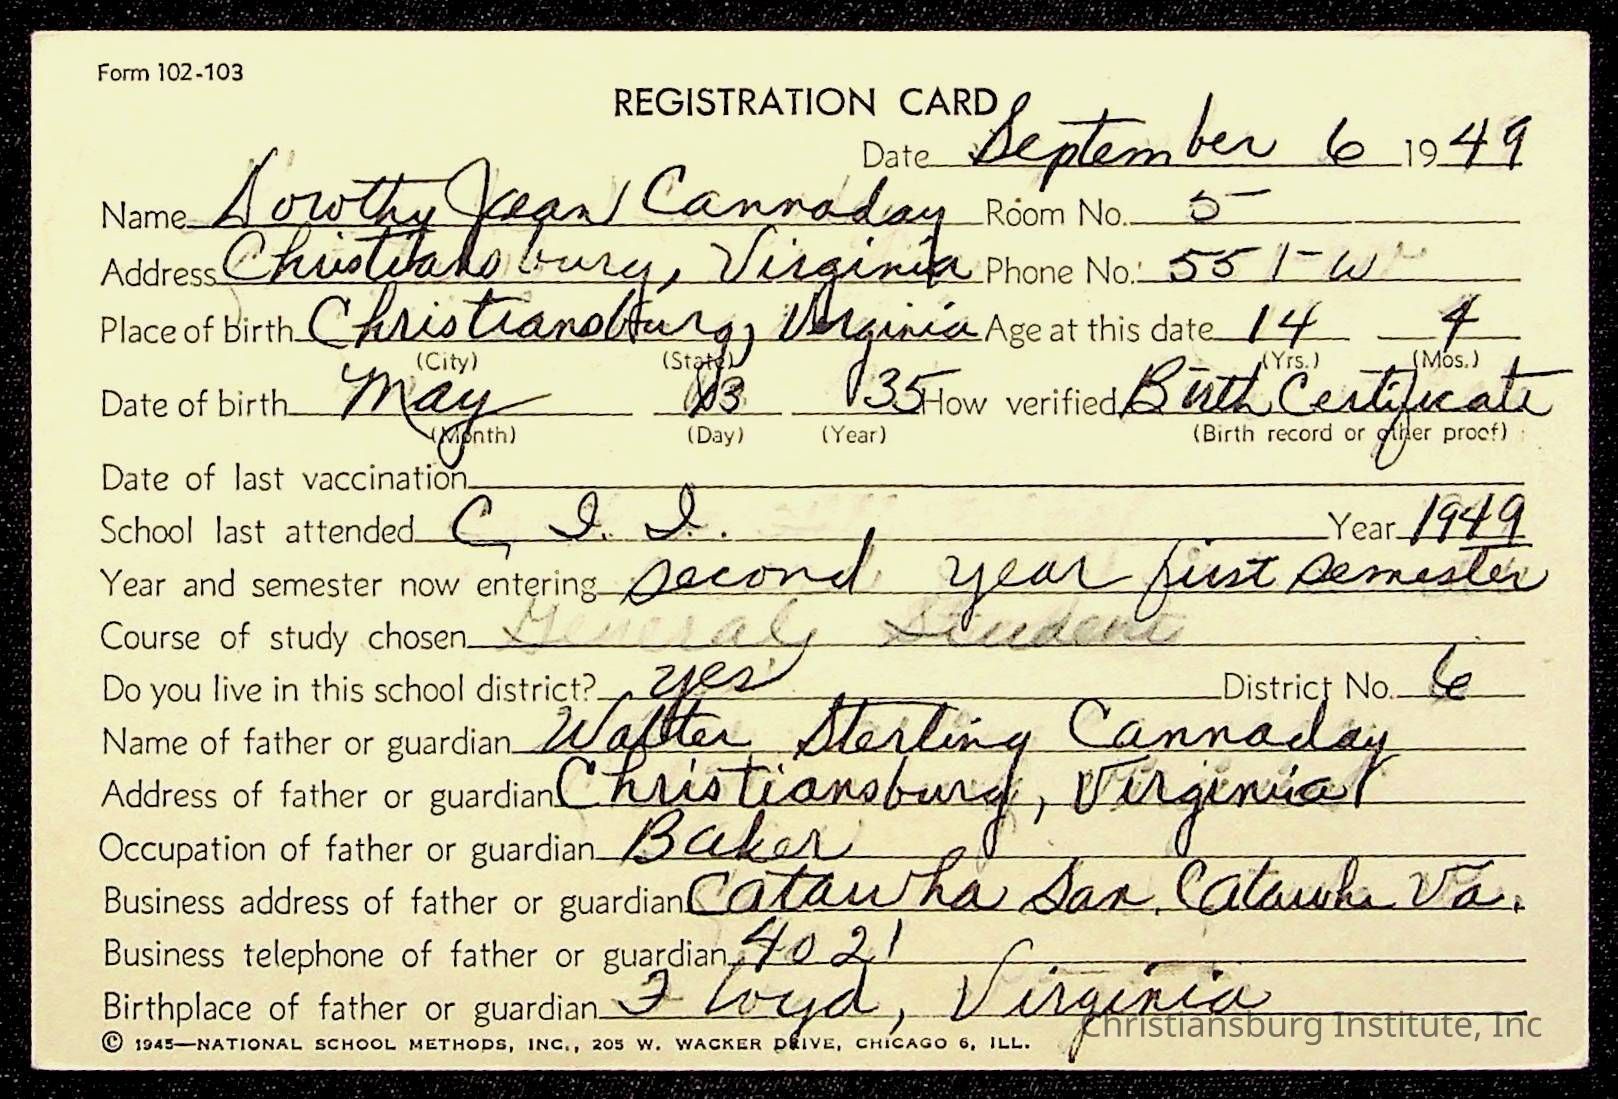 Form 102-103
REGISTRATION CARD
Date September 6 1949
Name Dorothy Jean Cannaday Room No. 5
Address Christiansburg, Virginia Phone No. 551-W
Place of birth Christiansburg, Virginia Age at this date 14 4
(City) (State) (Yrs.) (Mos.)
Date of birth May 13 35 How verified Birth Certificate
(Month) (Day) (Year) (Birth record or other proof)
Date of last vaccination
School last attended C. I. I. Year 1949
Year and semester now entering second year first semester
Course of study chosen General Student
Do you live in this school district? yes District No. 6
Name of father or guardian Walter Sterling Cannaday
Address of father or guardian Christiansburg, Virginia
Occupation of father or guardian Baker
Business address of father or guardian Catawba San. Catawba Va.
Business telephone of father or guardian 4021
Birthplace of father or guardian Floyd, Virginia
Christiansburg Institute, Inc
© 1945—NATIONAL SCHOOL METHODS, INC., 205 W. WACKER DRIVE, CHICAGO 6, ILL.